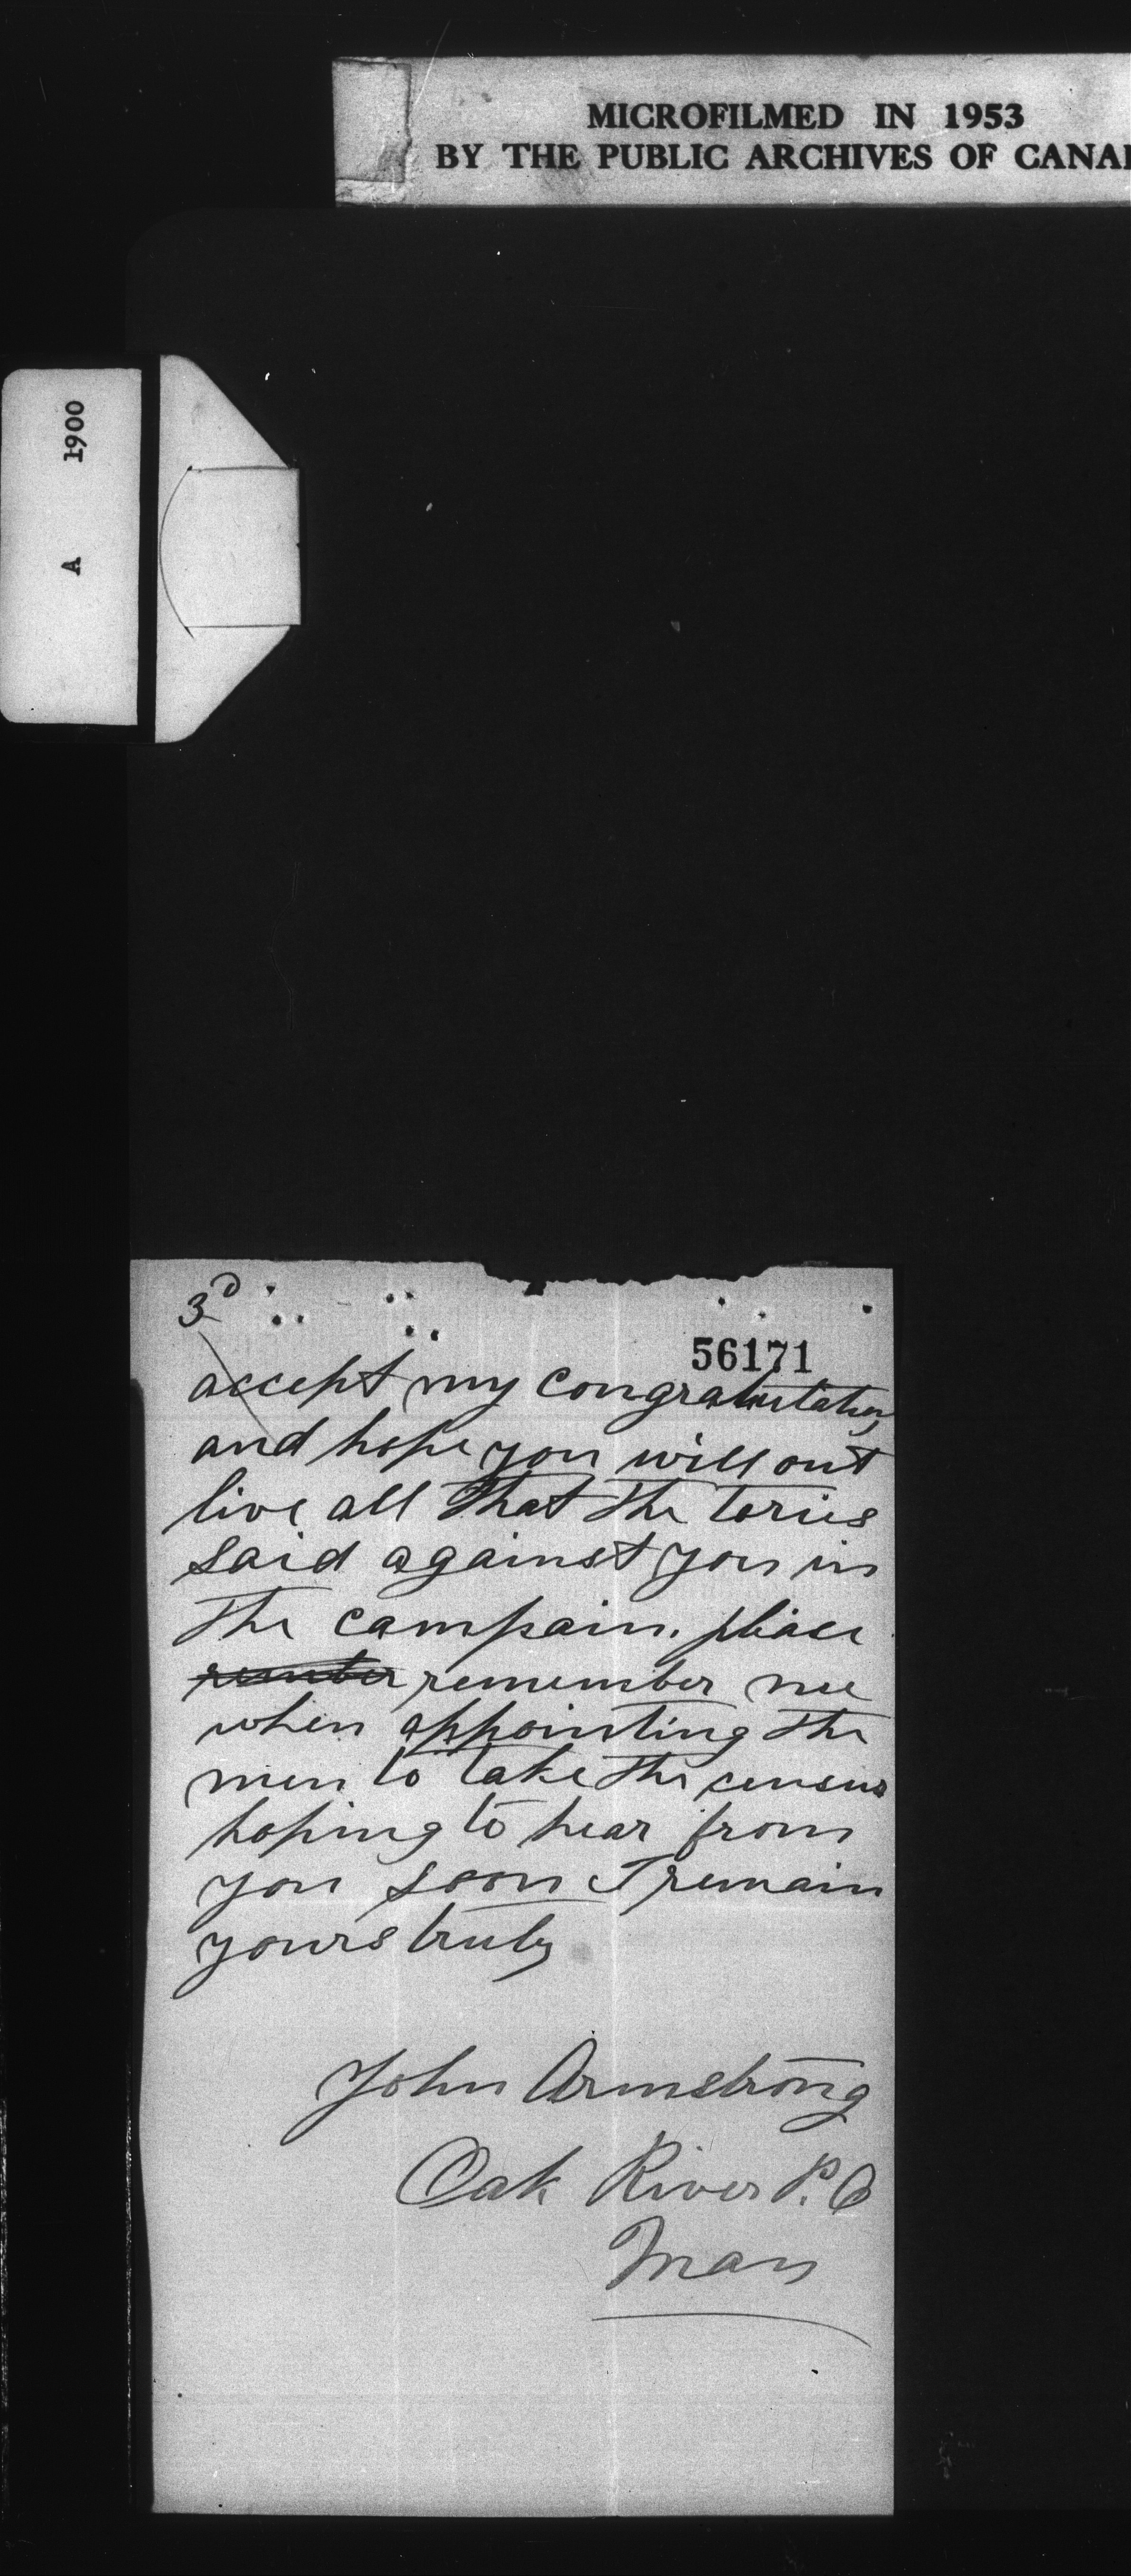 MICROFILMED IN 1953
BY THE PUBLIC ARCHIVES OF CANA
A 1900
3D
56171
accept my congratulation
and hope you will out
live all that the tories
said against you in
the campain. please
remember me
when appointing the
men to take the census
hoping to hear from
you soon I remain
yours truly
John Armstrong
Oak River P.O
Man